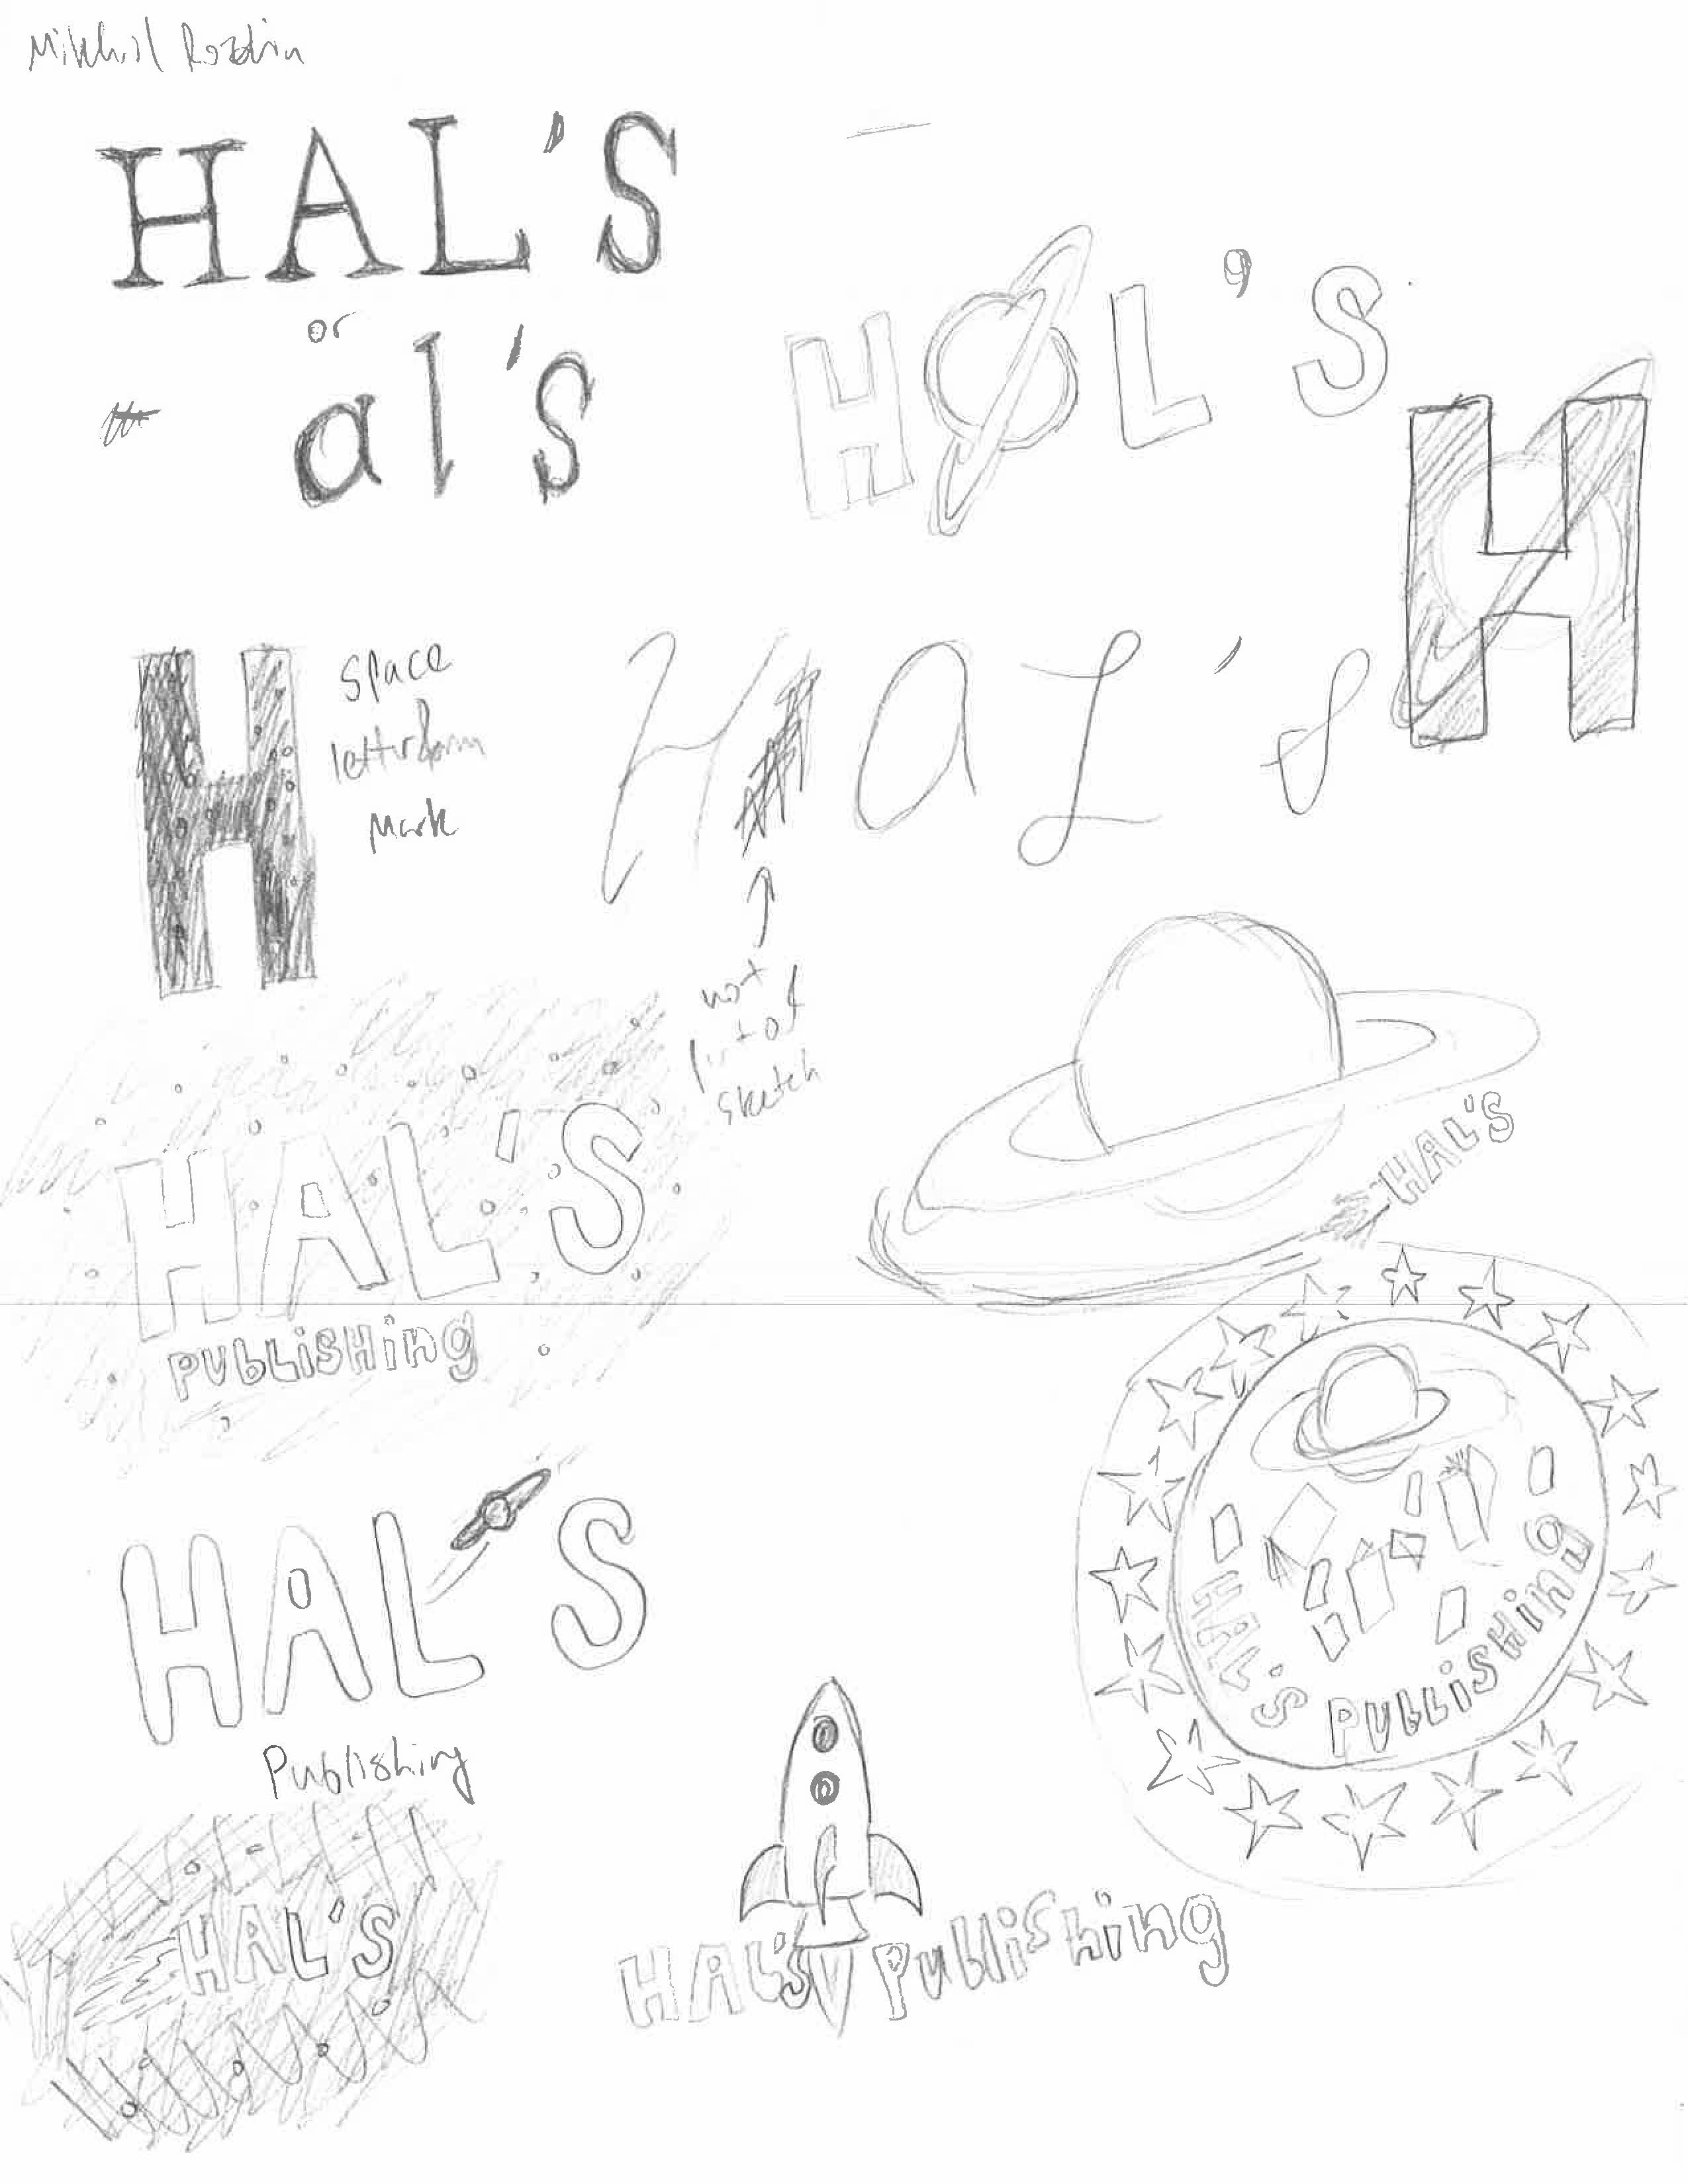 HAL'S
or
al's
H L'S
H
H
Space
letterform
Mark
HAL's
not
part of
sketch
HAL'S
PUBLiSHing
HAL'S
HAL S
Publishing
HAL'S PUbLiSHinG
HAL'S
HAL'S Publishing